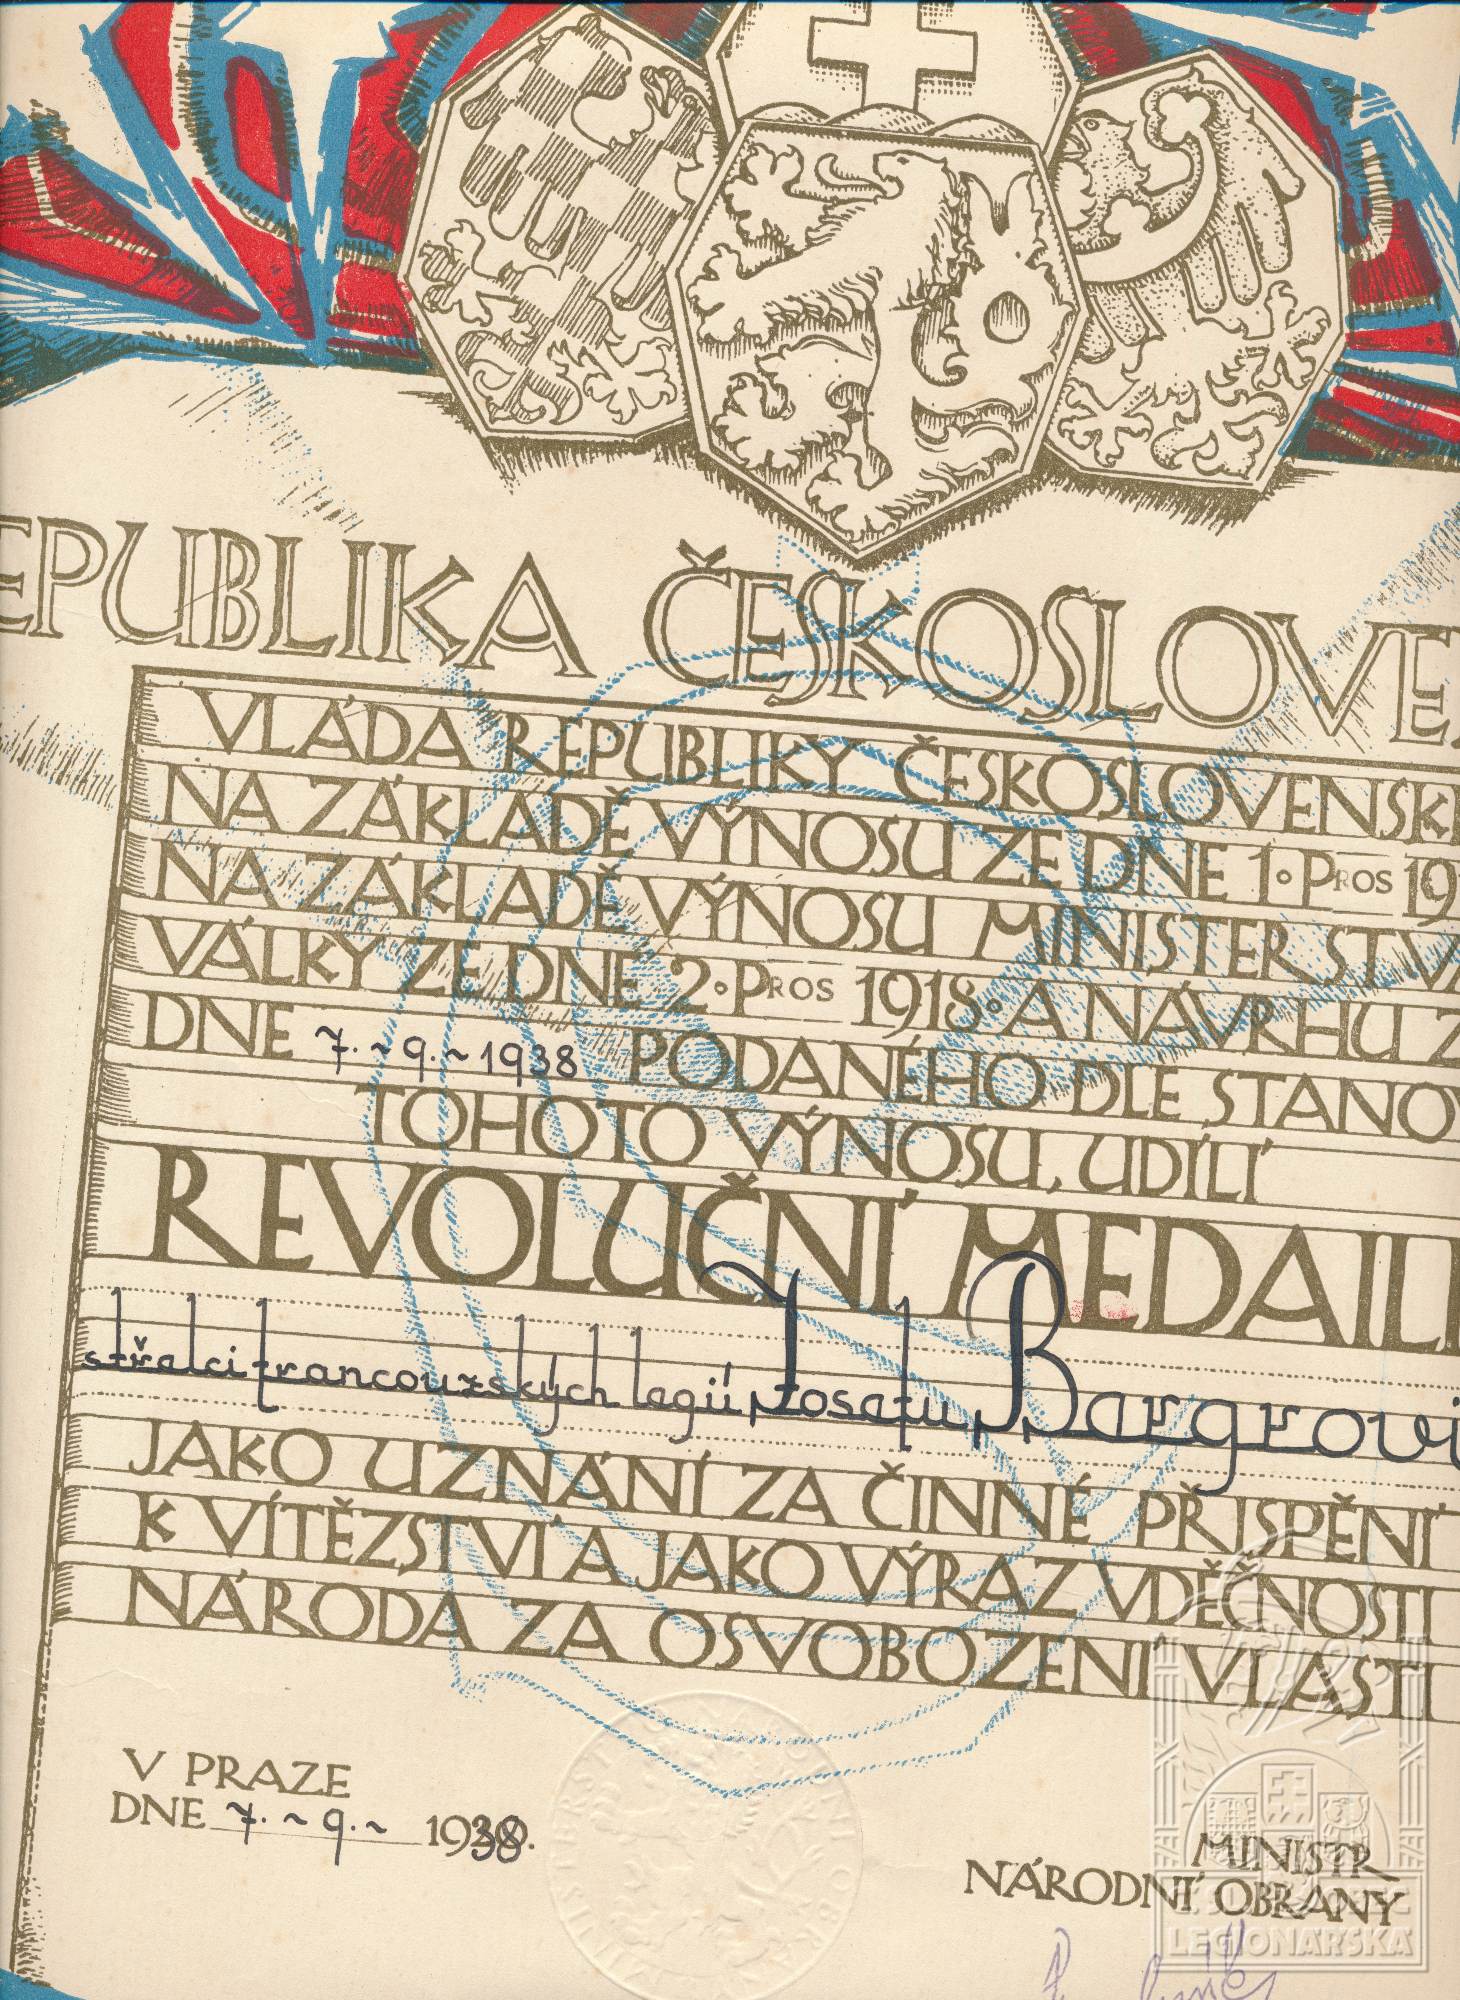 EPUBLIKA ČESKOSLOVE
VLÁDA REPUBLIKY ČESKOSLOVENSK
NA ZÁKLADĚ VÝNOSU ZE DNE 1. PROS 19
NA ZÁKLADĚ VÝNOSU MINISTERSTVA
VÁLKY ZE DNE 2. PROS 1918. A NÁVRHU Z
DNE 7.~9.~1938 PODANÉHO DLE STANOV
TOHOTO VÝNOSU, UDÍLÍ
REVOLUČNÍ MEDAIL
střelci francouzských legií, Josefu Bargrovi
JAKO UZNÁNÍ ZA ČINNÉ PŘISPĚNÍ
K VÍTĚZSTVÍ A JAKO VÝRAZ VDĚČNOSTI
NÁRODA ZA OSVOBOZENÍ VLASTI
V PRAZE
DNE 7.~9.~ 1938.
MINISTR
NÁRODNÍ OBRANY
OBEC
LEGIONÁŘSKÁ